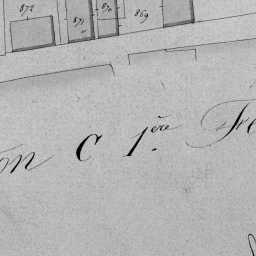 872 871 870 869
on C 1.ère Fe